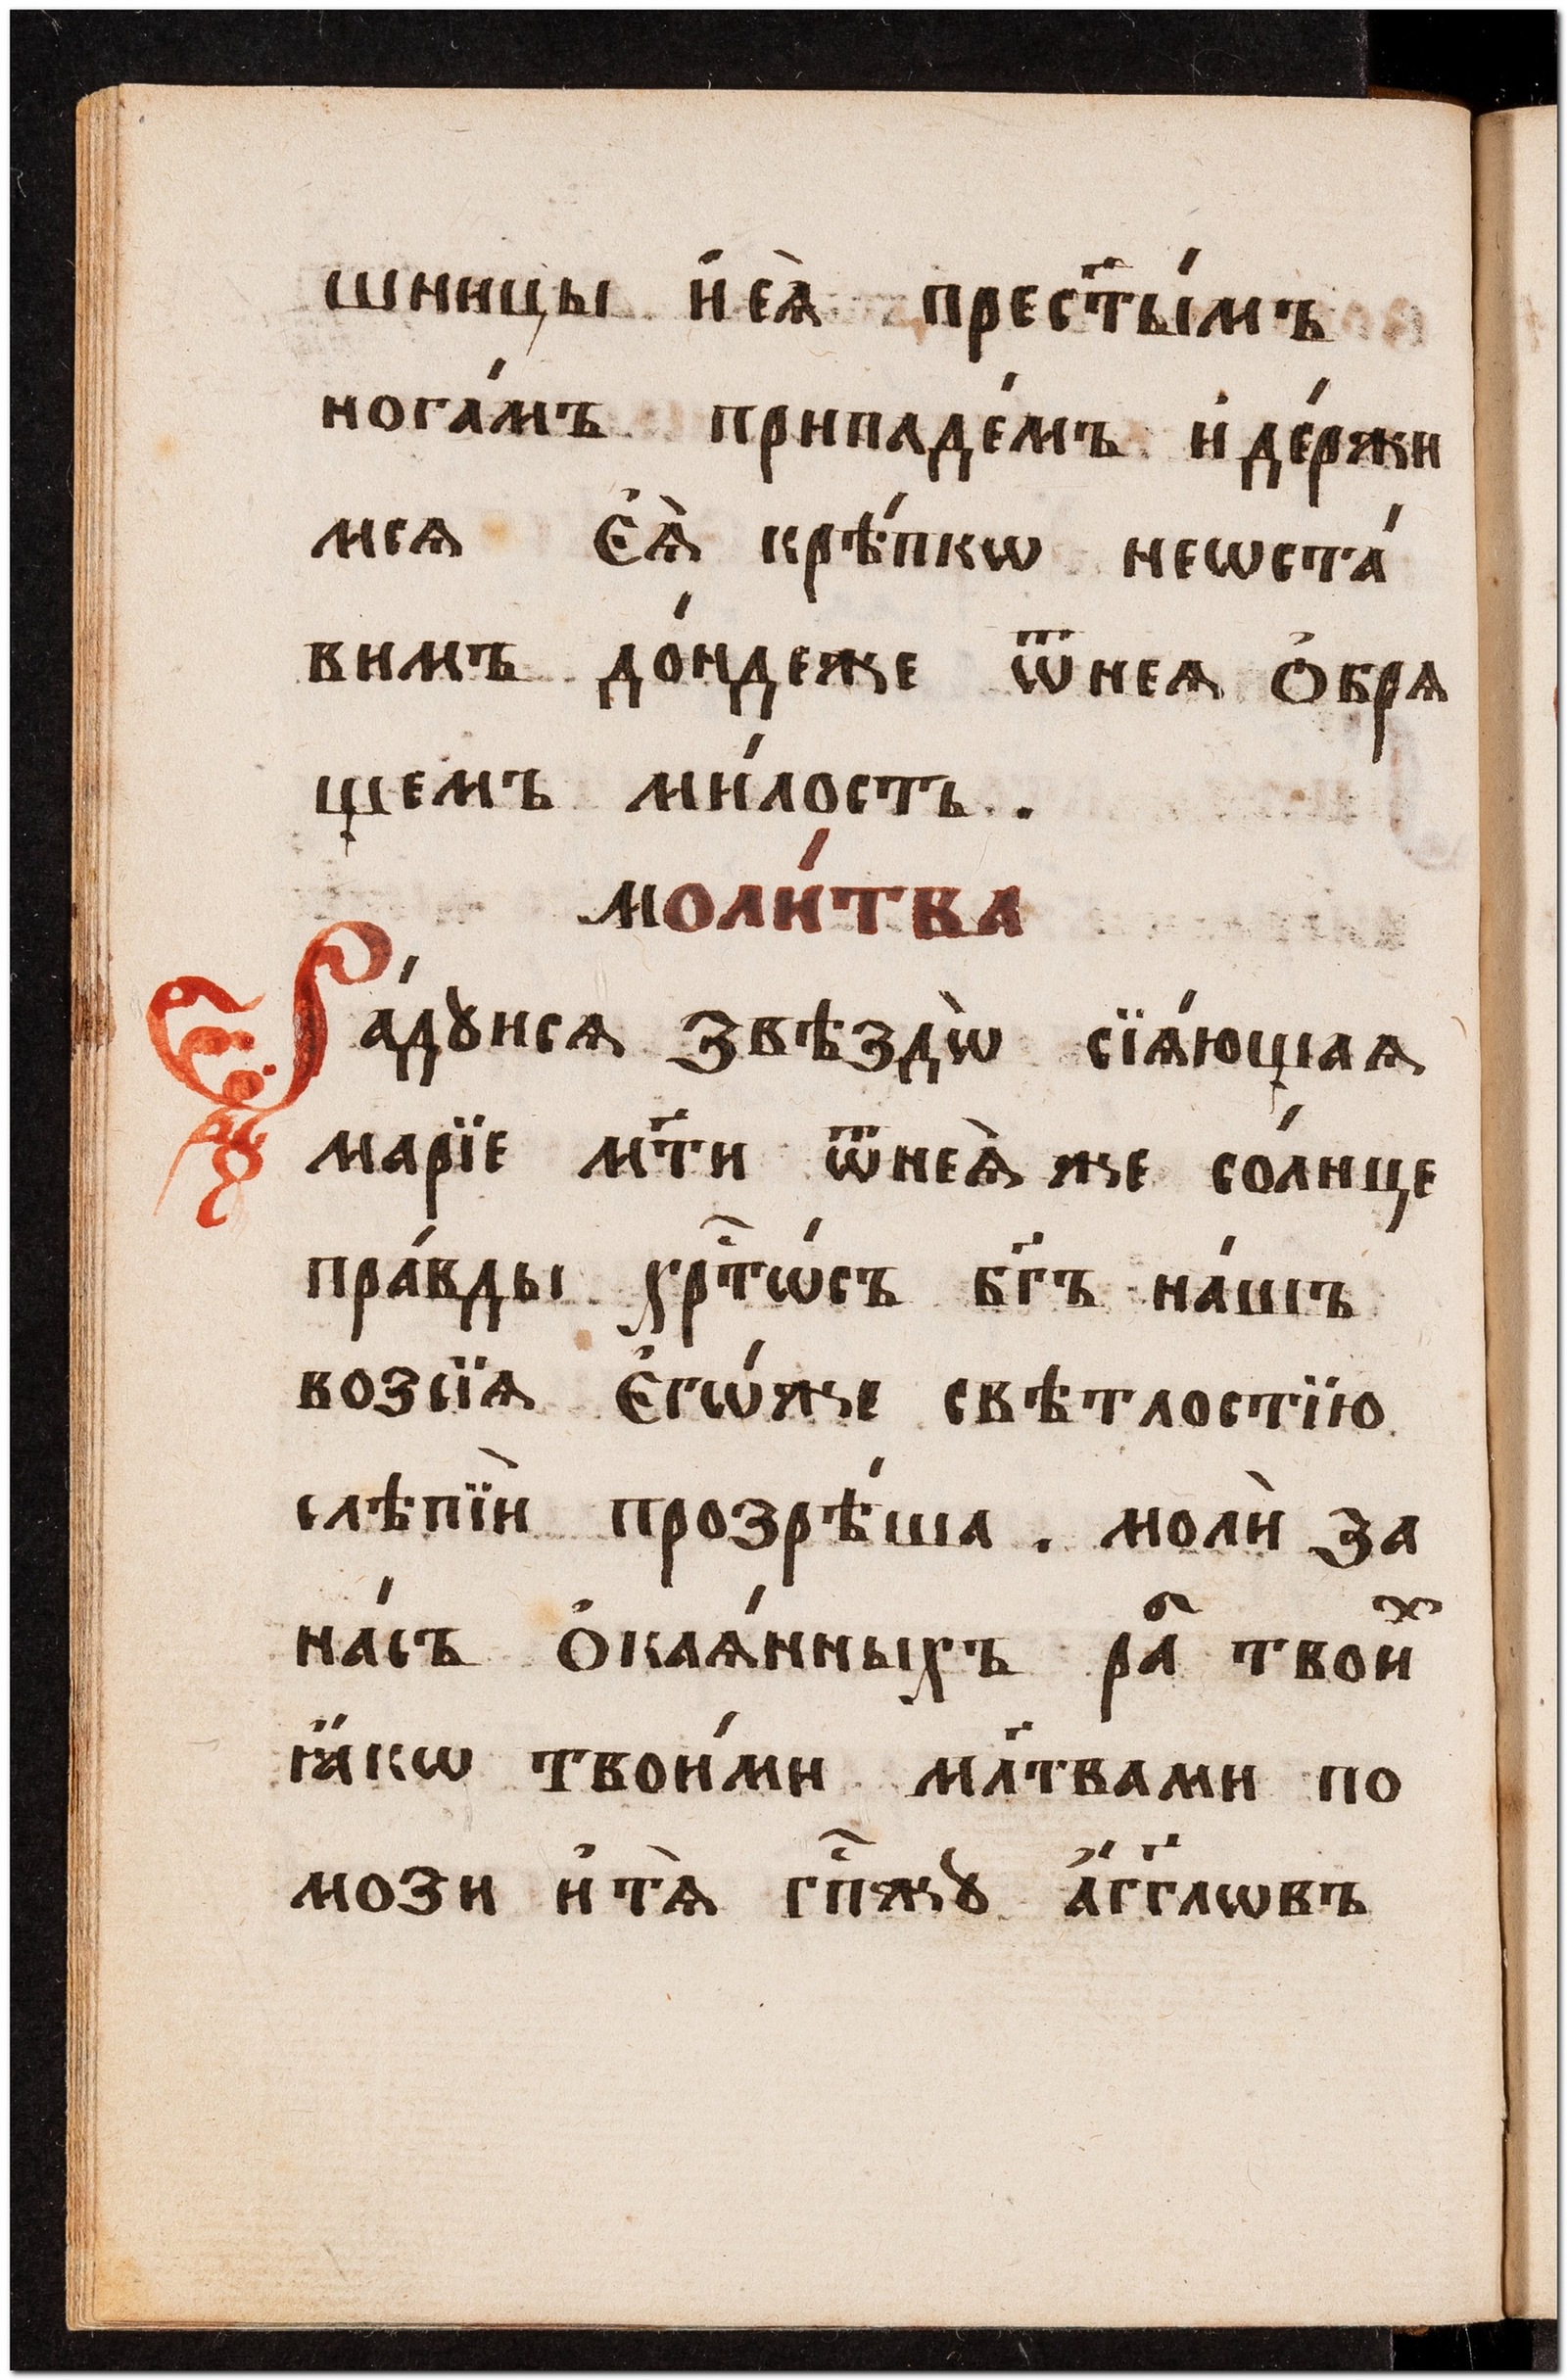 шницы и҆еѧ̀ прест҃ы́мъ
нога́мъ припаде́мъ и҆де́ржи
мсѧ є҆ѧ̀ крѣ́пкѡ неѡста́
вимъ до́ндеже ѿнеѧ о҆брѧ
щемъ ми́лость .
моли́тва
Ра́дꙋисѧ звѣздѡ̀ сїѧ́ющаѧ
марїе мт҃и ѿнеѧ̀же со́лнце
пра́вды хрⷭ҇тѡ́съ бг҃ъ на́шъ
возсїѧ є҆гѡ́же свѣтлостїю
слѣпїѝ прозрѣ́ша . молѝ за
на́съ о҆каѧ́нныхъ раⷠ҇ твоиⷯ
ꙗ҆́кѡ твои́ми мл҃твами по
мози и҆тѧ̀ гпⷭ҇жꙋ а҆́гг҃лѡвъ